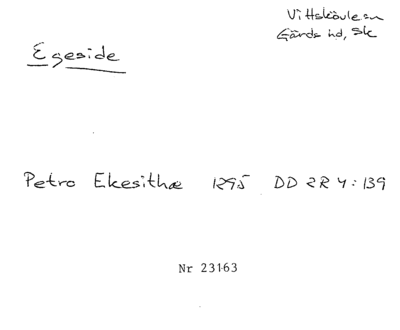 Vittskövle sn
Gärds hd, Sk
Egeside
Petro Ekesithæ 1295 DD 2R 4:139
Nr 23163